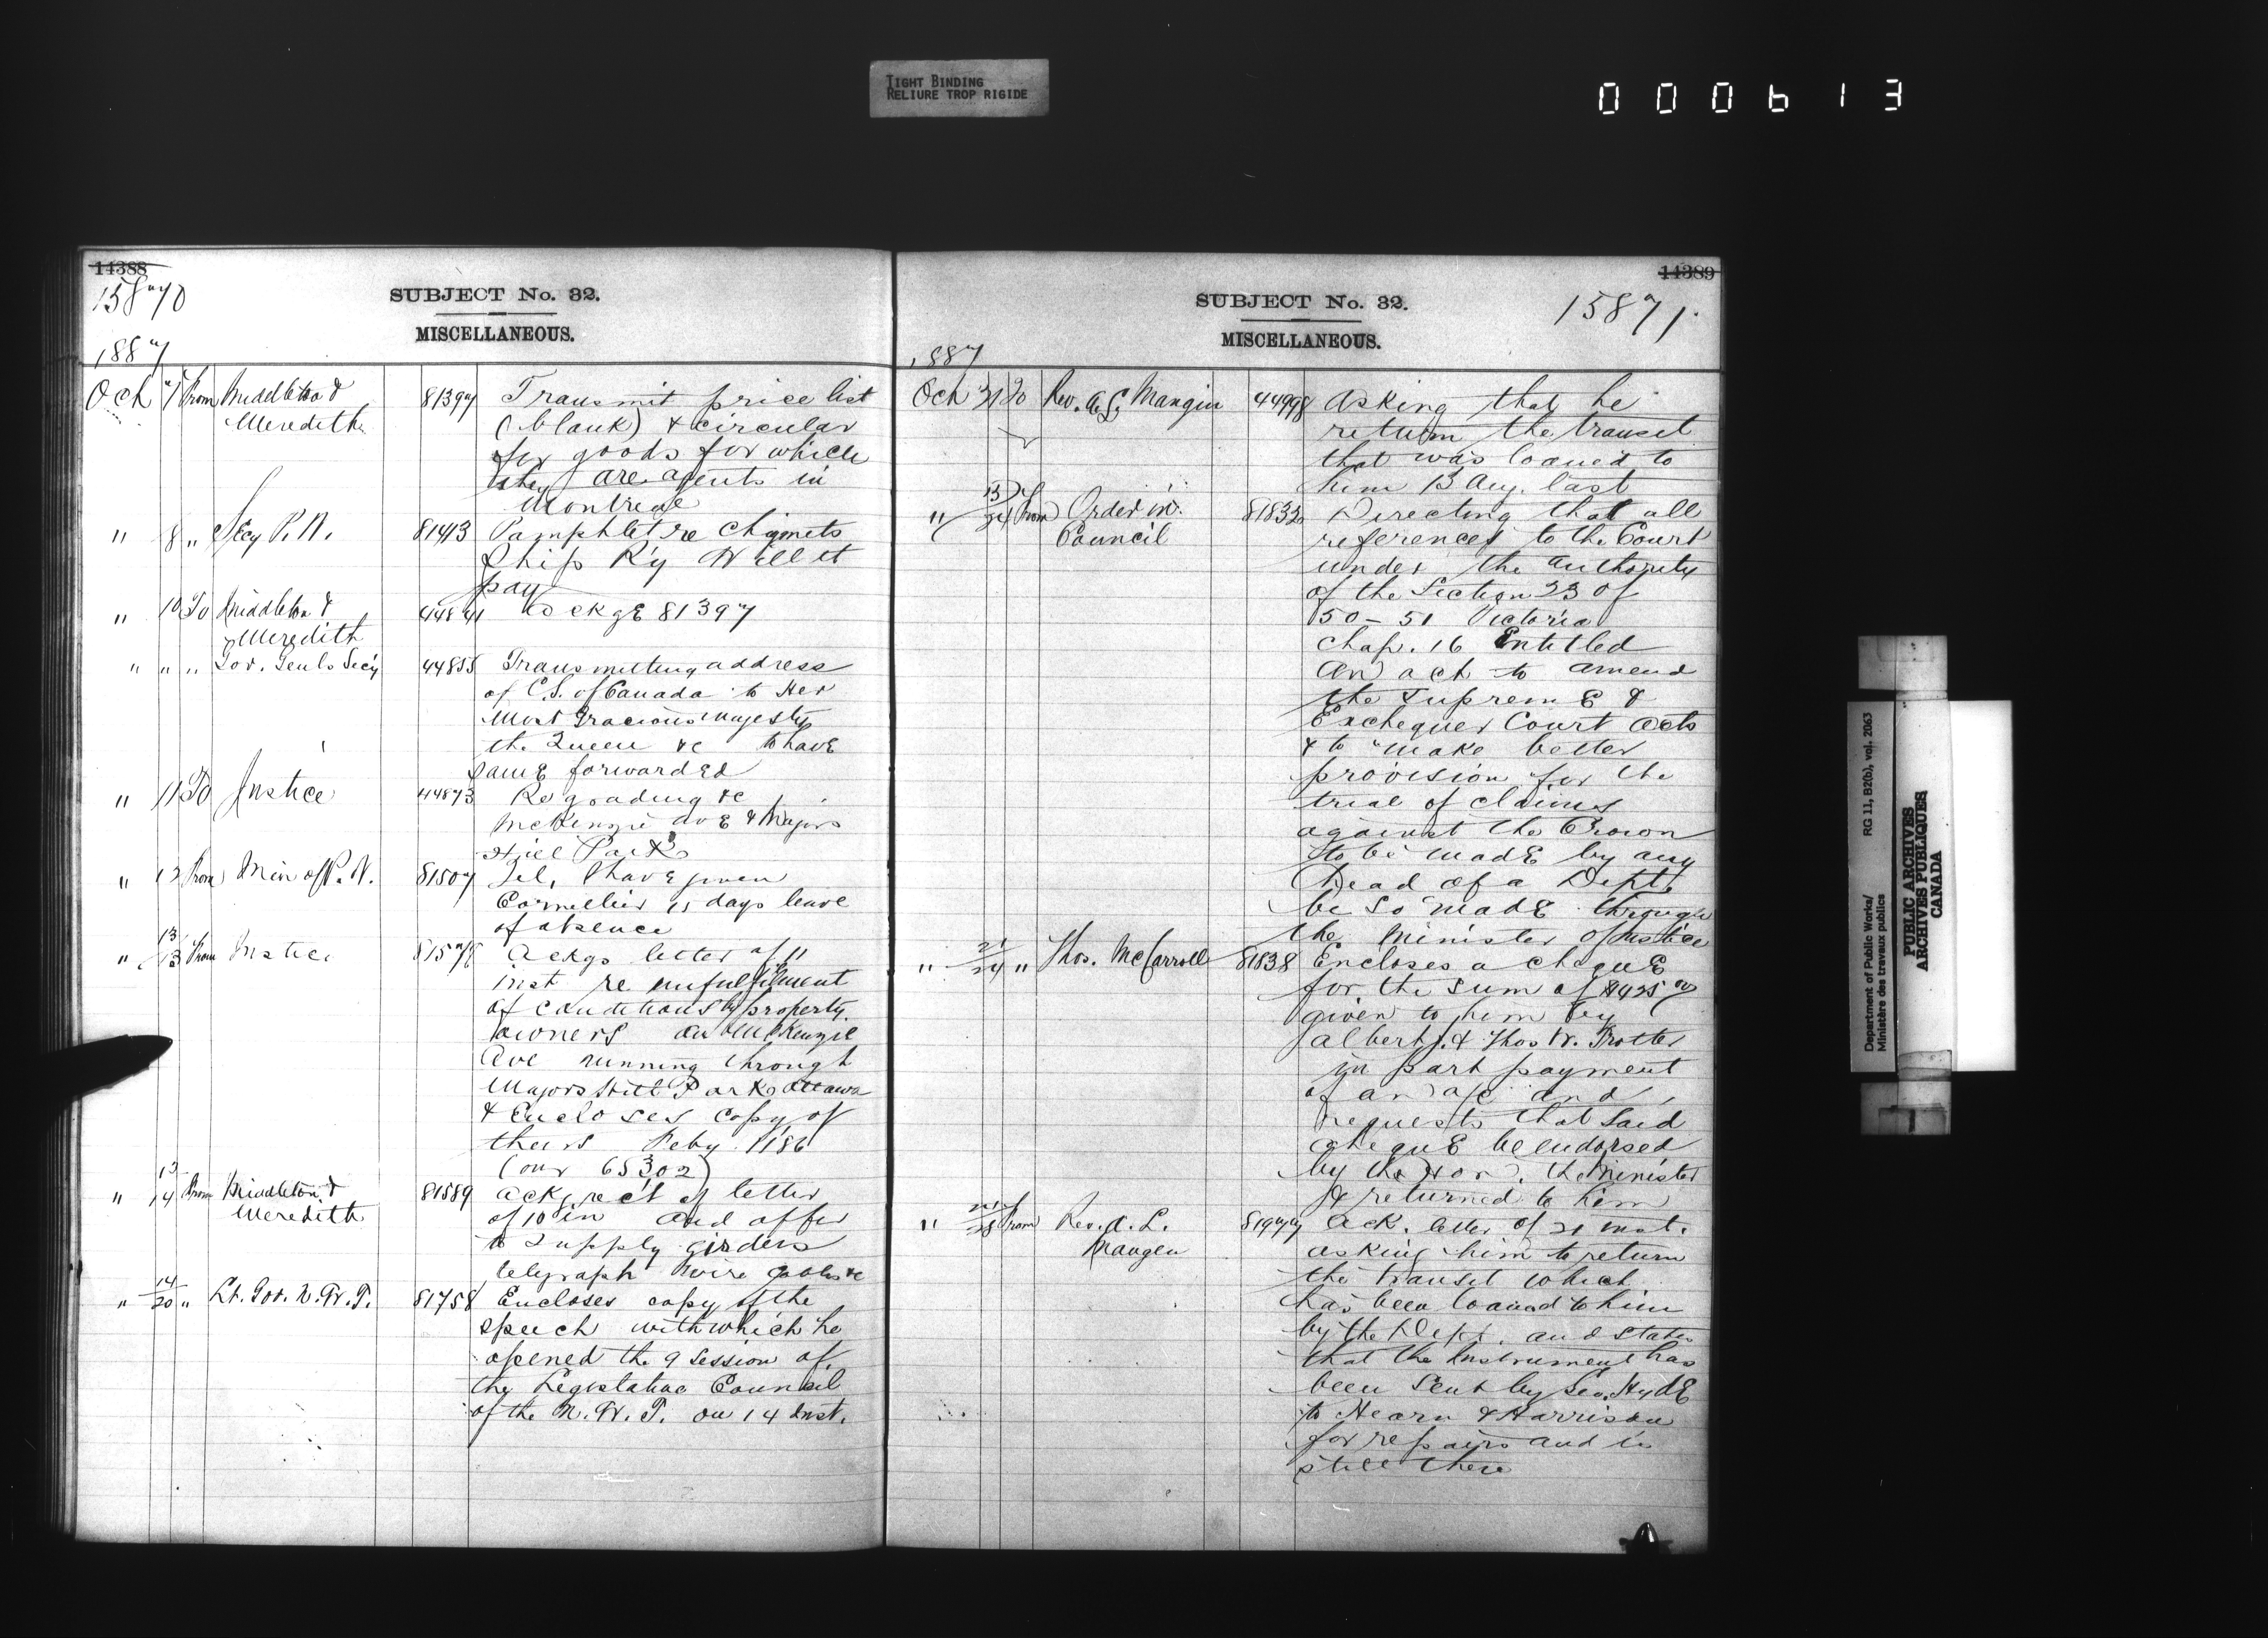 TIGHT BINDING
RELIURE TROP RIGIDE
000613
14388
15870
SUBJECT No. 32.
MISCELLANEOUS.
1887
Oct 7 From Middleton & 81397 Transmit price list
Meredith (blank) & circular
for goods for which
they are agents in
Montreal
" 8 " Secy P.W. 81413 Pamphlet re Chignets
Ship Ry Will it
pay
" 10 To Middleton & 44841 Ackge 81397
Meredith
" " " Gov. Genls Secy 44855 Transmitting address
of C.S. of Canada to Her
Most Gracious Majesty
the Queen &c to have
same forwarded
" 11 To Justice 44873 Re grading &c
McKenzie ave & Majors
Hill Park
" 12 From Min of P.W. 81507 Tel, I have given
Cormellier 15 days leave
of absence
" 13/13 From Justice 81578 Ackgs letter of 11
inst re nufulfilment
of conditions by property
owners on McKenzie
Ave running through
Majors Hill Park Ottawa
& Encloses copy of
theirs Feby 11 86
(our 65302)
" 13/14 From Middleton & 81589 ackg rect of letter
Meredith of 10 in and offer
to supply girders
telegraph wire cables &c
" 14/20 " Lt. Gov. N.W.T. 81758 Encloses copy of the
speech with which he
opened the 9 session of
the Legislative Council
of the N.W.T. on 14 inst.
14389
SUBJECT No. 32.
15871
MISCELLANEOUS.
1887
Oct 21 To Rev. A. L. Mangin 44998 Asking that he
return the transit
that was loaned to
him 13 Aug. last
" 13/24 From Order in 81832 Directing that all
Council references to the Court
under the authority
of the Section 23 of
50 - 51 Victoria
Chap. 16 Entitled
An act to amend
the Supreme &
Exchequer Court Acts
& to "make better
provision for the
trial of claims
against the Crown
to be made by any
head of a Dept.
be so made through
the Minister of Justice
" 21/24 " Thos. McCarroll 81838 Encloses a cheque
for the sum of $425 00
given to him by
Albert J. & Thos W. Trotter
in part payment
of an a/c and
requests that said
cheque be endorsed
by the Hon. the Minister
& returned to him
" 28 From Rev. A. L. 81977 Ack. letter of 21 inst.
Mangen asking him to return
the transit which
has been loaned to him
by the Dept. and states
that the Instrument has
been sent by Geo. Hyde
to Hearn & Harrison
for repairs and is
still there
Department of Public Works/ RG 11, B2(b), vol. 2063
Ministère des travaux publics
PUBLIC ARCHIVES
ARCHIVES PUBLIQUES
CANADA